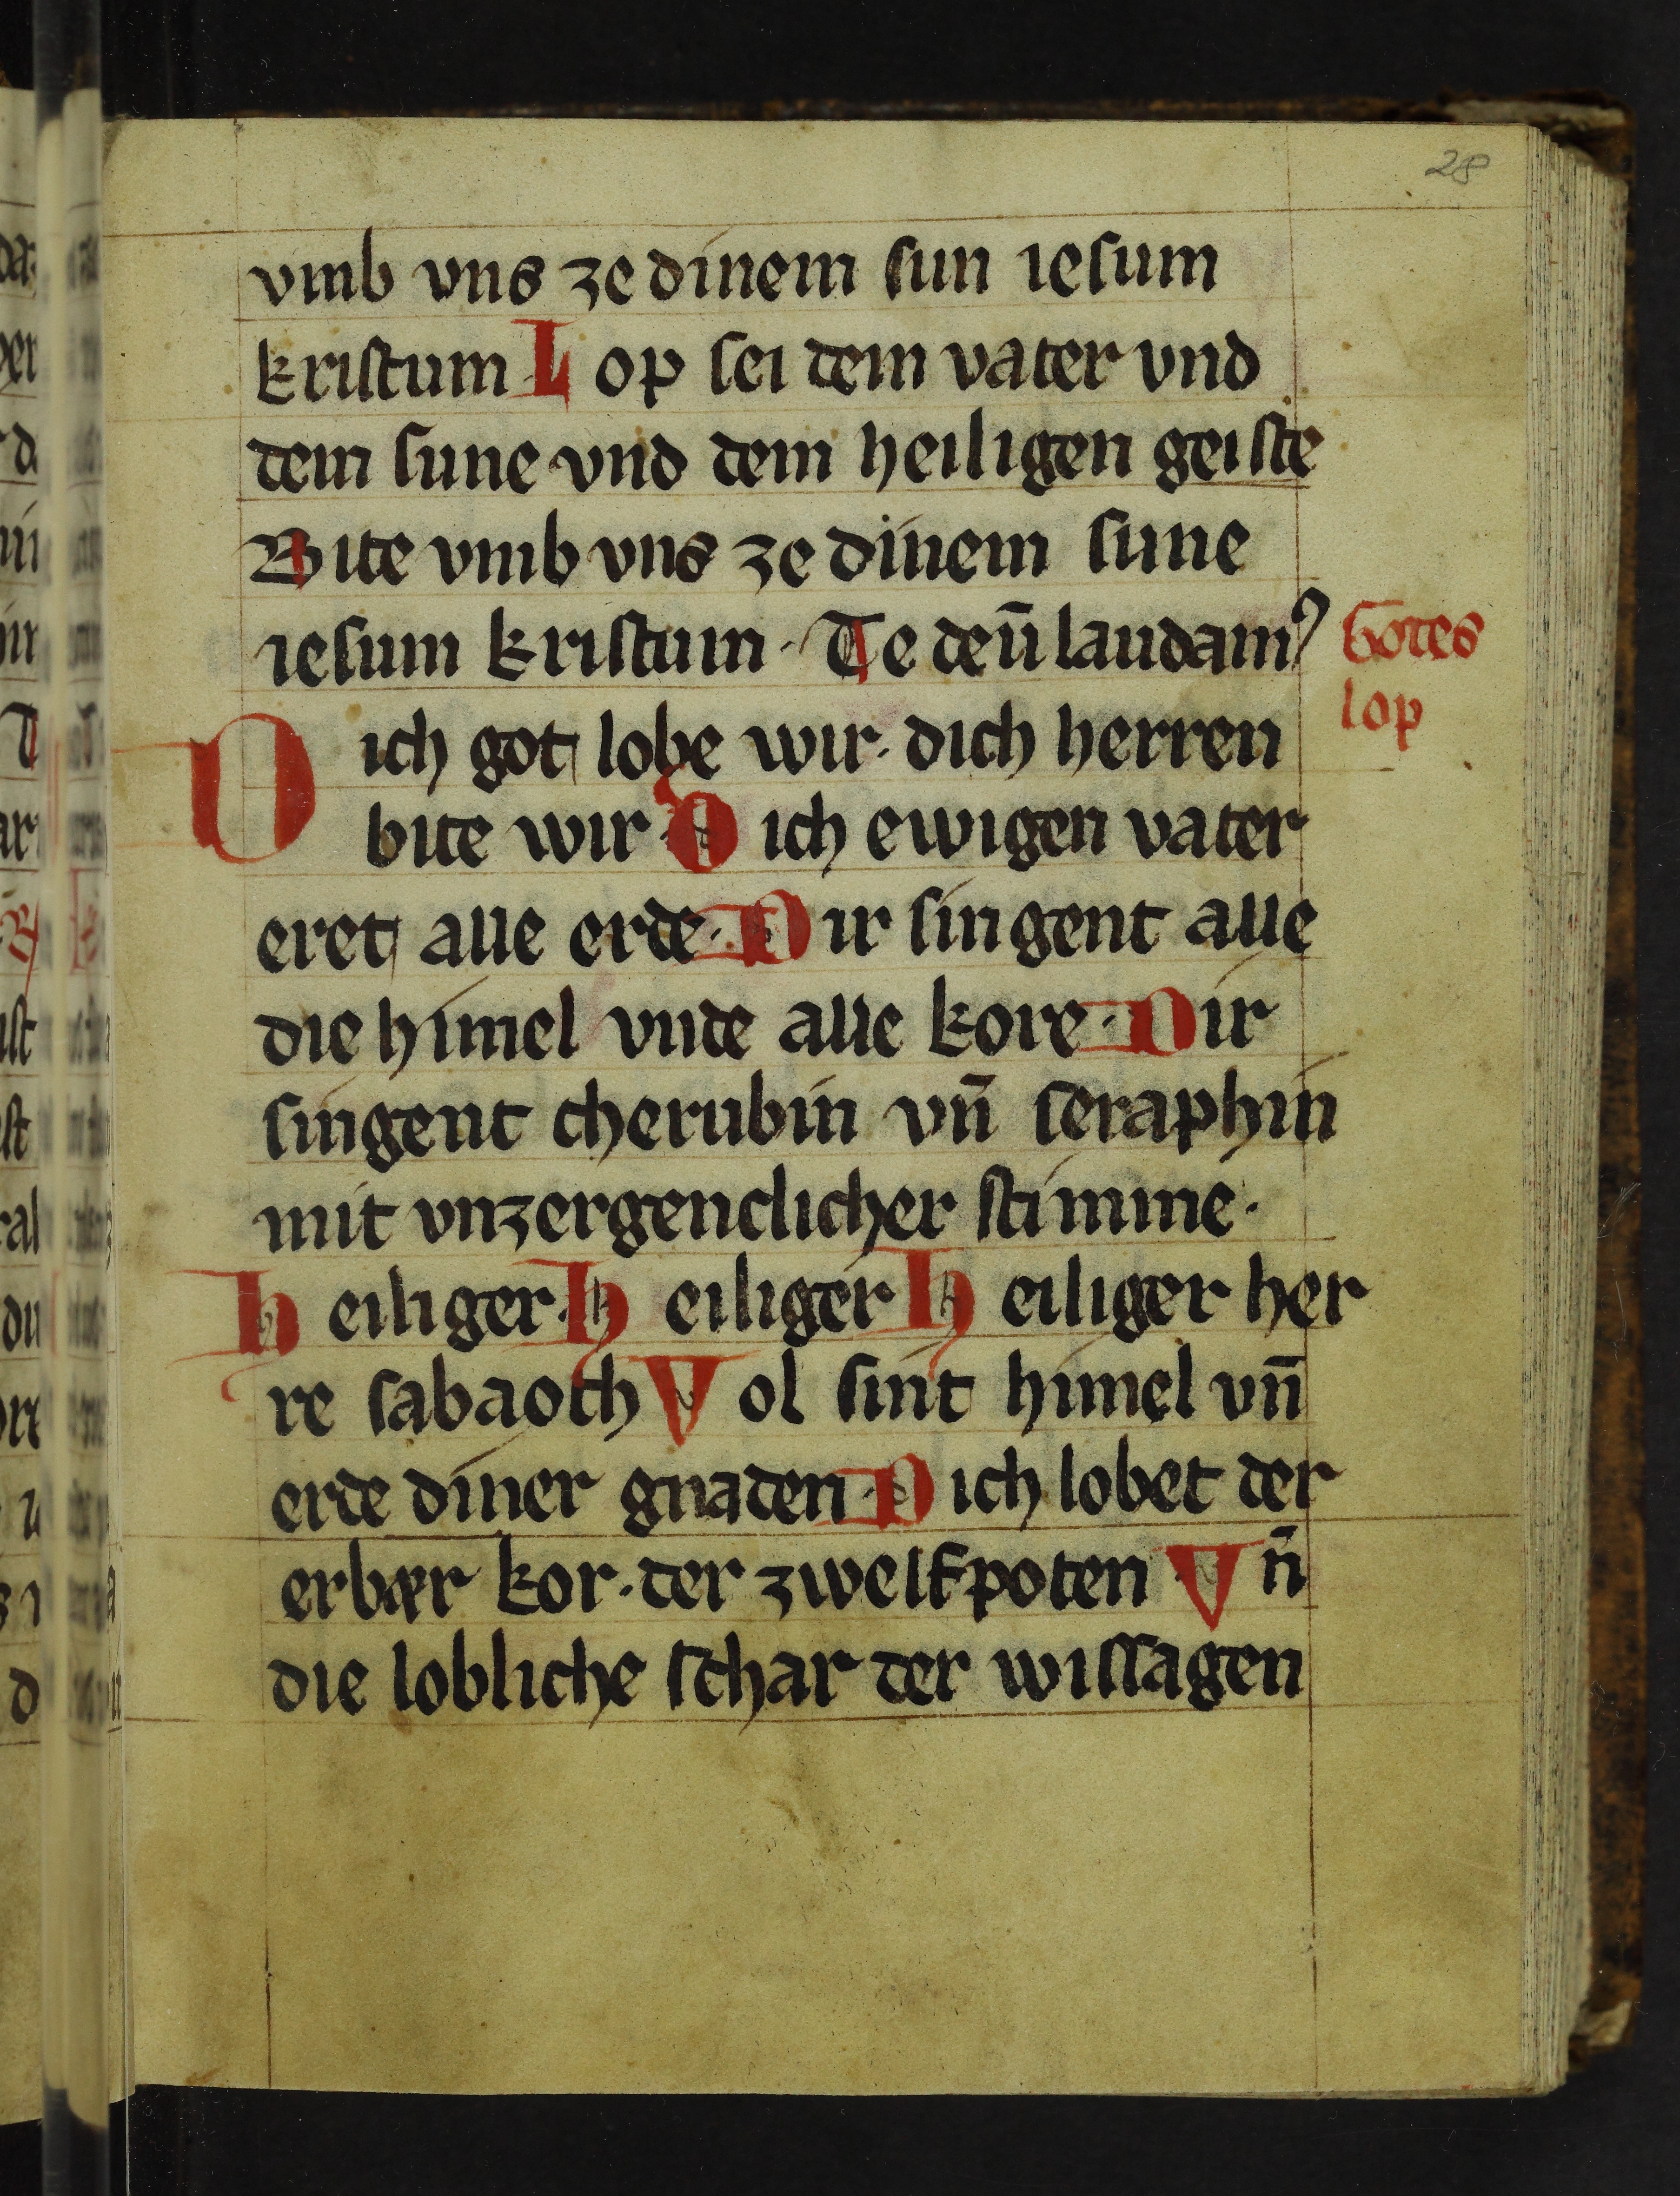 28
vmb vns ze dinem sun iesum
kristum Lop sei dem vater vnd
dem sune vnd dem heiligen geiste
Bite vmb vns ze dinem sune
iesum kristum · Te deū laudamꝰ
Gotes
lop
Dich got lobe wir · dich herren
bite wir · Dich ewigen vater
eret alle erde · Dir singent alle
die himel vnde alle kore · Dir
singent cherubin vn̄ seraphin
mit vnzergenclicher stimme ·
Heiliger · Heiliger Heiliger her
re sabaoth Vol sint himel vn̄
erde diner gnaden · Dich lobet der
erbær kor · der zwelfpoten · Vn̄
die lobliche schar der wissagen